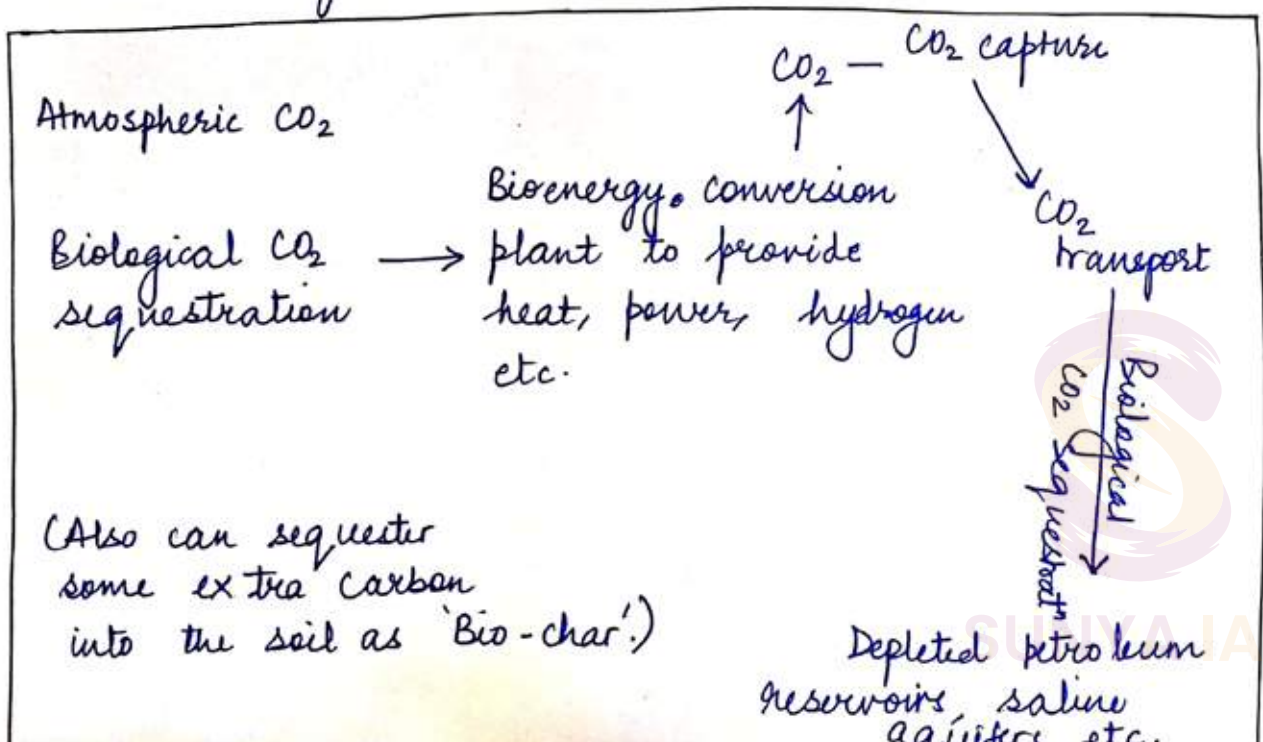 CO₂ — CO₂ capture
Atmospheric CO₂
Biological CO₂
sequestration
Bioenergy. conversion
plant to provide
heat, power, hydrogen
etc.
CO₂
transport
Biological
CO₂ Sequestratⁿ
(Also can sequester
some extra carbon
into the soil as 'Bio-char'.)
Depleted petroleum
reservoirs, saline
aquifers etc.
SUNYA IA